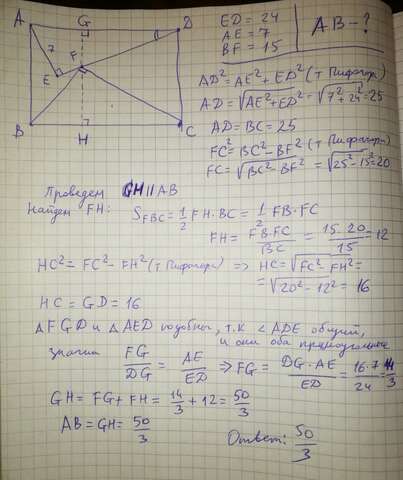 A G D
ED = 24
AE = 7
BF = 15
AB - ?
7
F
E
B H C
AD² = AE² + ED² (т Пифагора)
AD = √AE² + ED² = √7² + 24² = 25
AD = BC = 25
FC² = BC² - BF² (т Пифагора)
FC = √BC² - BF² = √25² - 15² = 20
Проведем GH || AB
Найдем FH: S_FBC = 1/2 FH · BC = 1/2 FB · FC
FH = FB·FC / BC = 15·20 / 15 = 12
HC² = FC² - FH² (т Пифагора) => HC = √FC² - FH² =
= √20² - 12² = 16
HC = GD = 16
△ FGD и △ AED подобны, т.к ∠ ADE общий,
значит и они оба прямоугольные
FG / DG = AE / ED => FG = DG · AE / ED = 16·7 / 24 = 14/3
GH = FG + FH = 14/3 + 12 = 50/3
AB = GH = 50/3
Ответ: 50/3